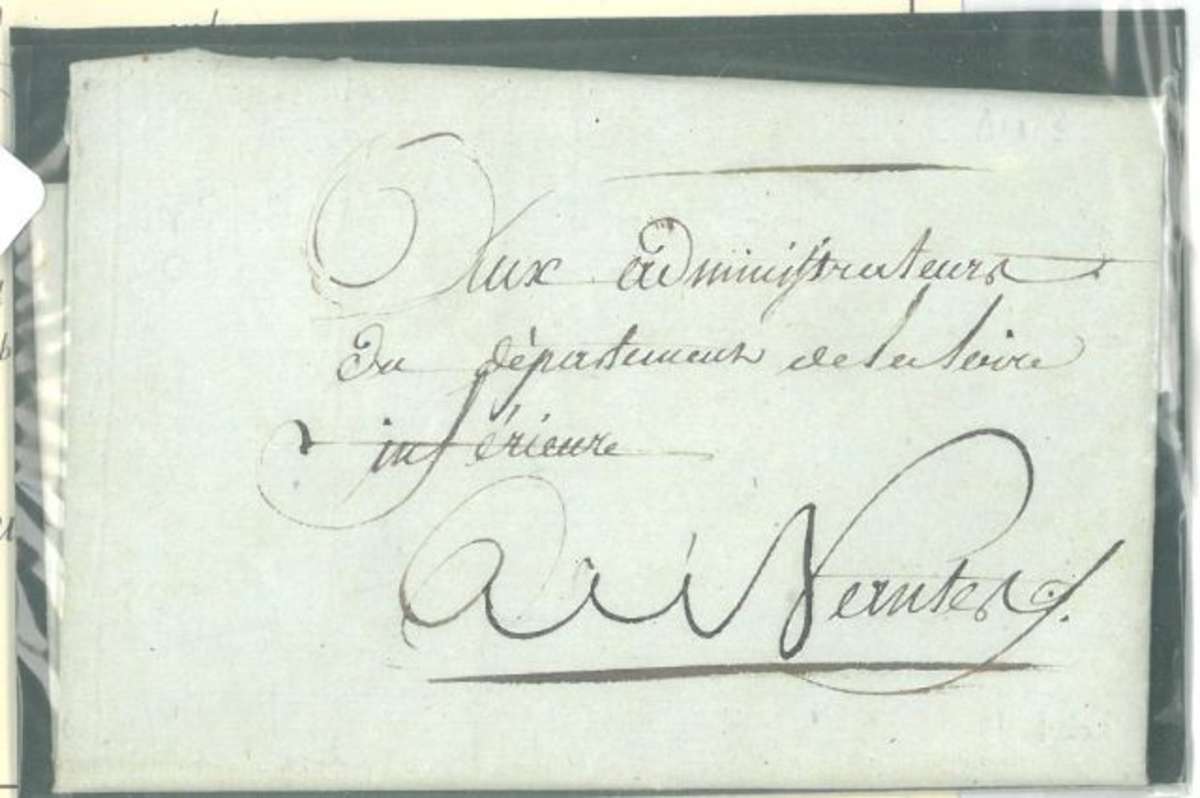 Aux administrateurs
du département de la Loire
inférieure
a Nantes.